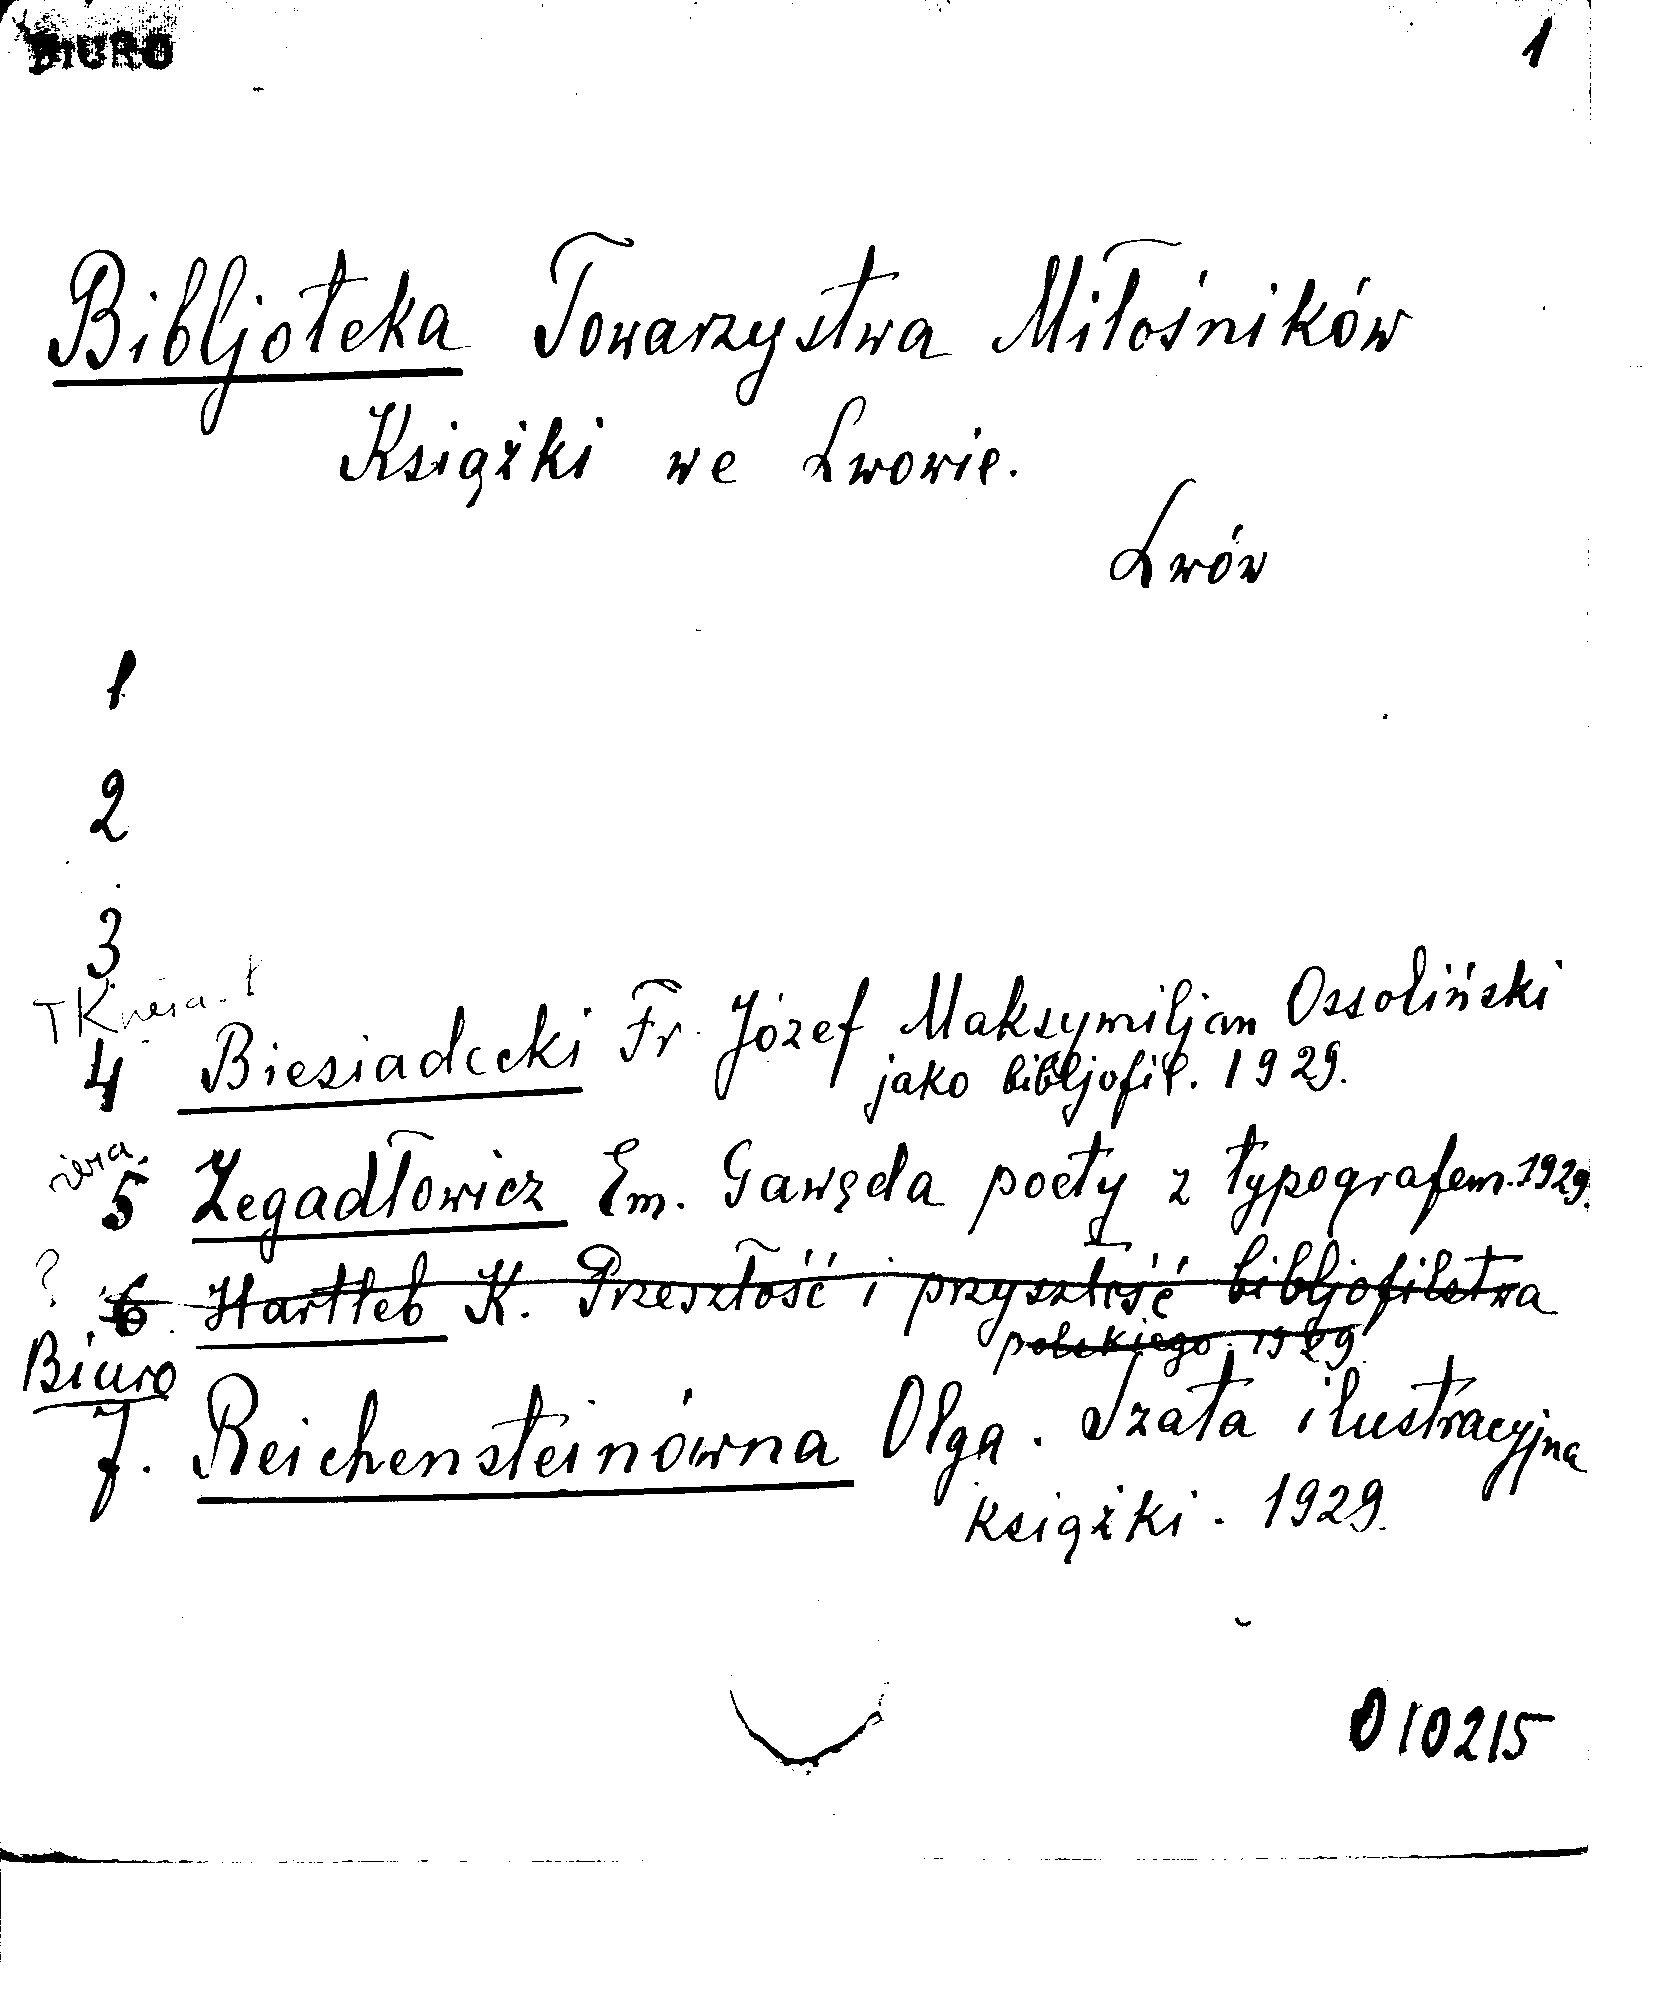 BIURO
1
Bibljoteka Towarzystwa Miłośników
Książki we Lwowie.
Lwów
1
2
3
4 Biesiadecki Fr. Józef Maksymiljan Ossoliński
jako bibljofil. 1929.
5 Zegadłowicz Em. Gawęda poety z typografem. 1929.
?
6 Hartleb K. Przeszłość i przyszłość bibljofilstwa
polskiego. 1929.
Biuro
7. Reichensteinówna Olga. Szata ilustracyjna
książki. 1929.
010215